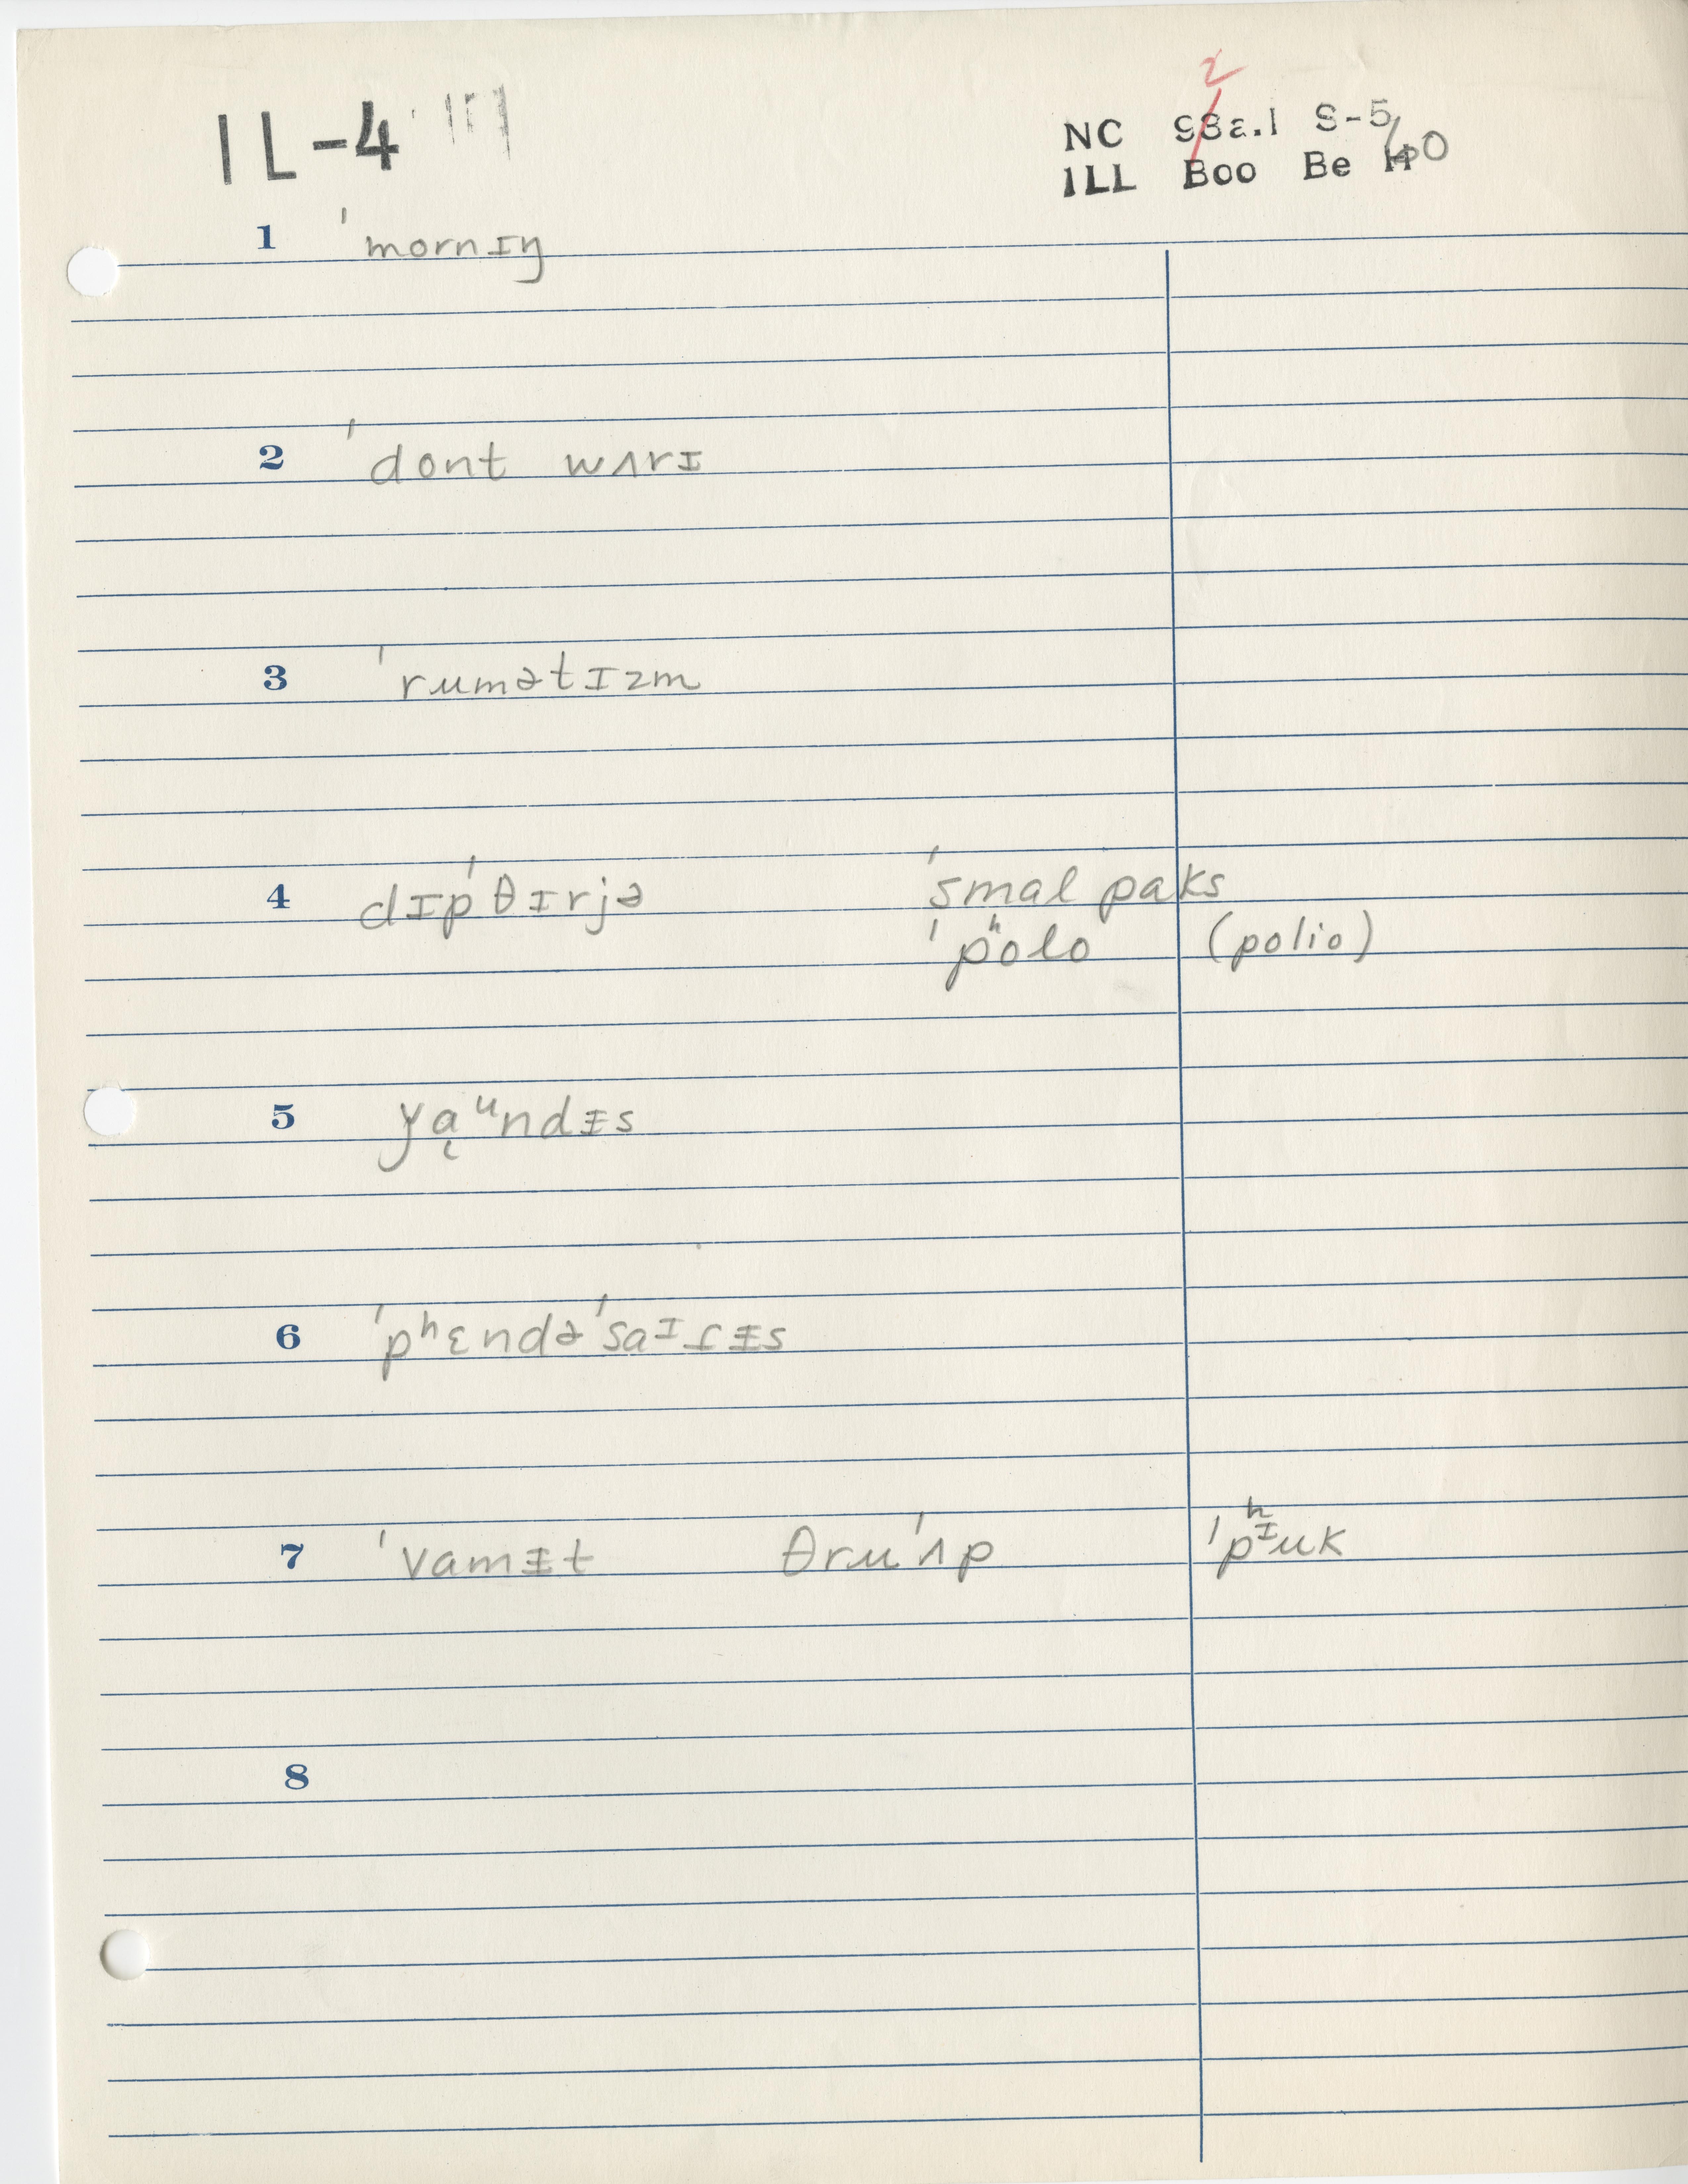 IL-4
2
NC 98a.1 S-5
60
ILL Boo Be H
1 ˈmornɪŋ
2 ˈdont wʌrɪ
3 ˈrumətɪzm
4 dɪpˈθɪrjə ˈsmal paks
ˈpʰolo (polio)
5 ya̜ᵘndɪs
6 ˈpʰɛndəˈsaᶦɾɨs
7 ˈvamɨt θruˈʌp ˈpʰᶦuk
8